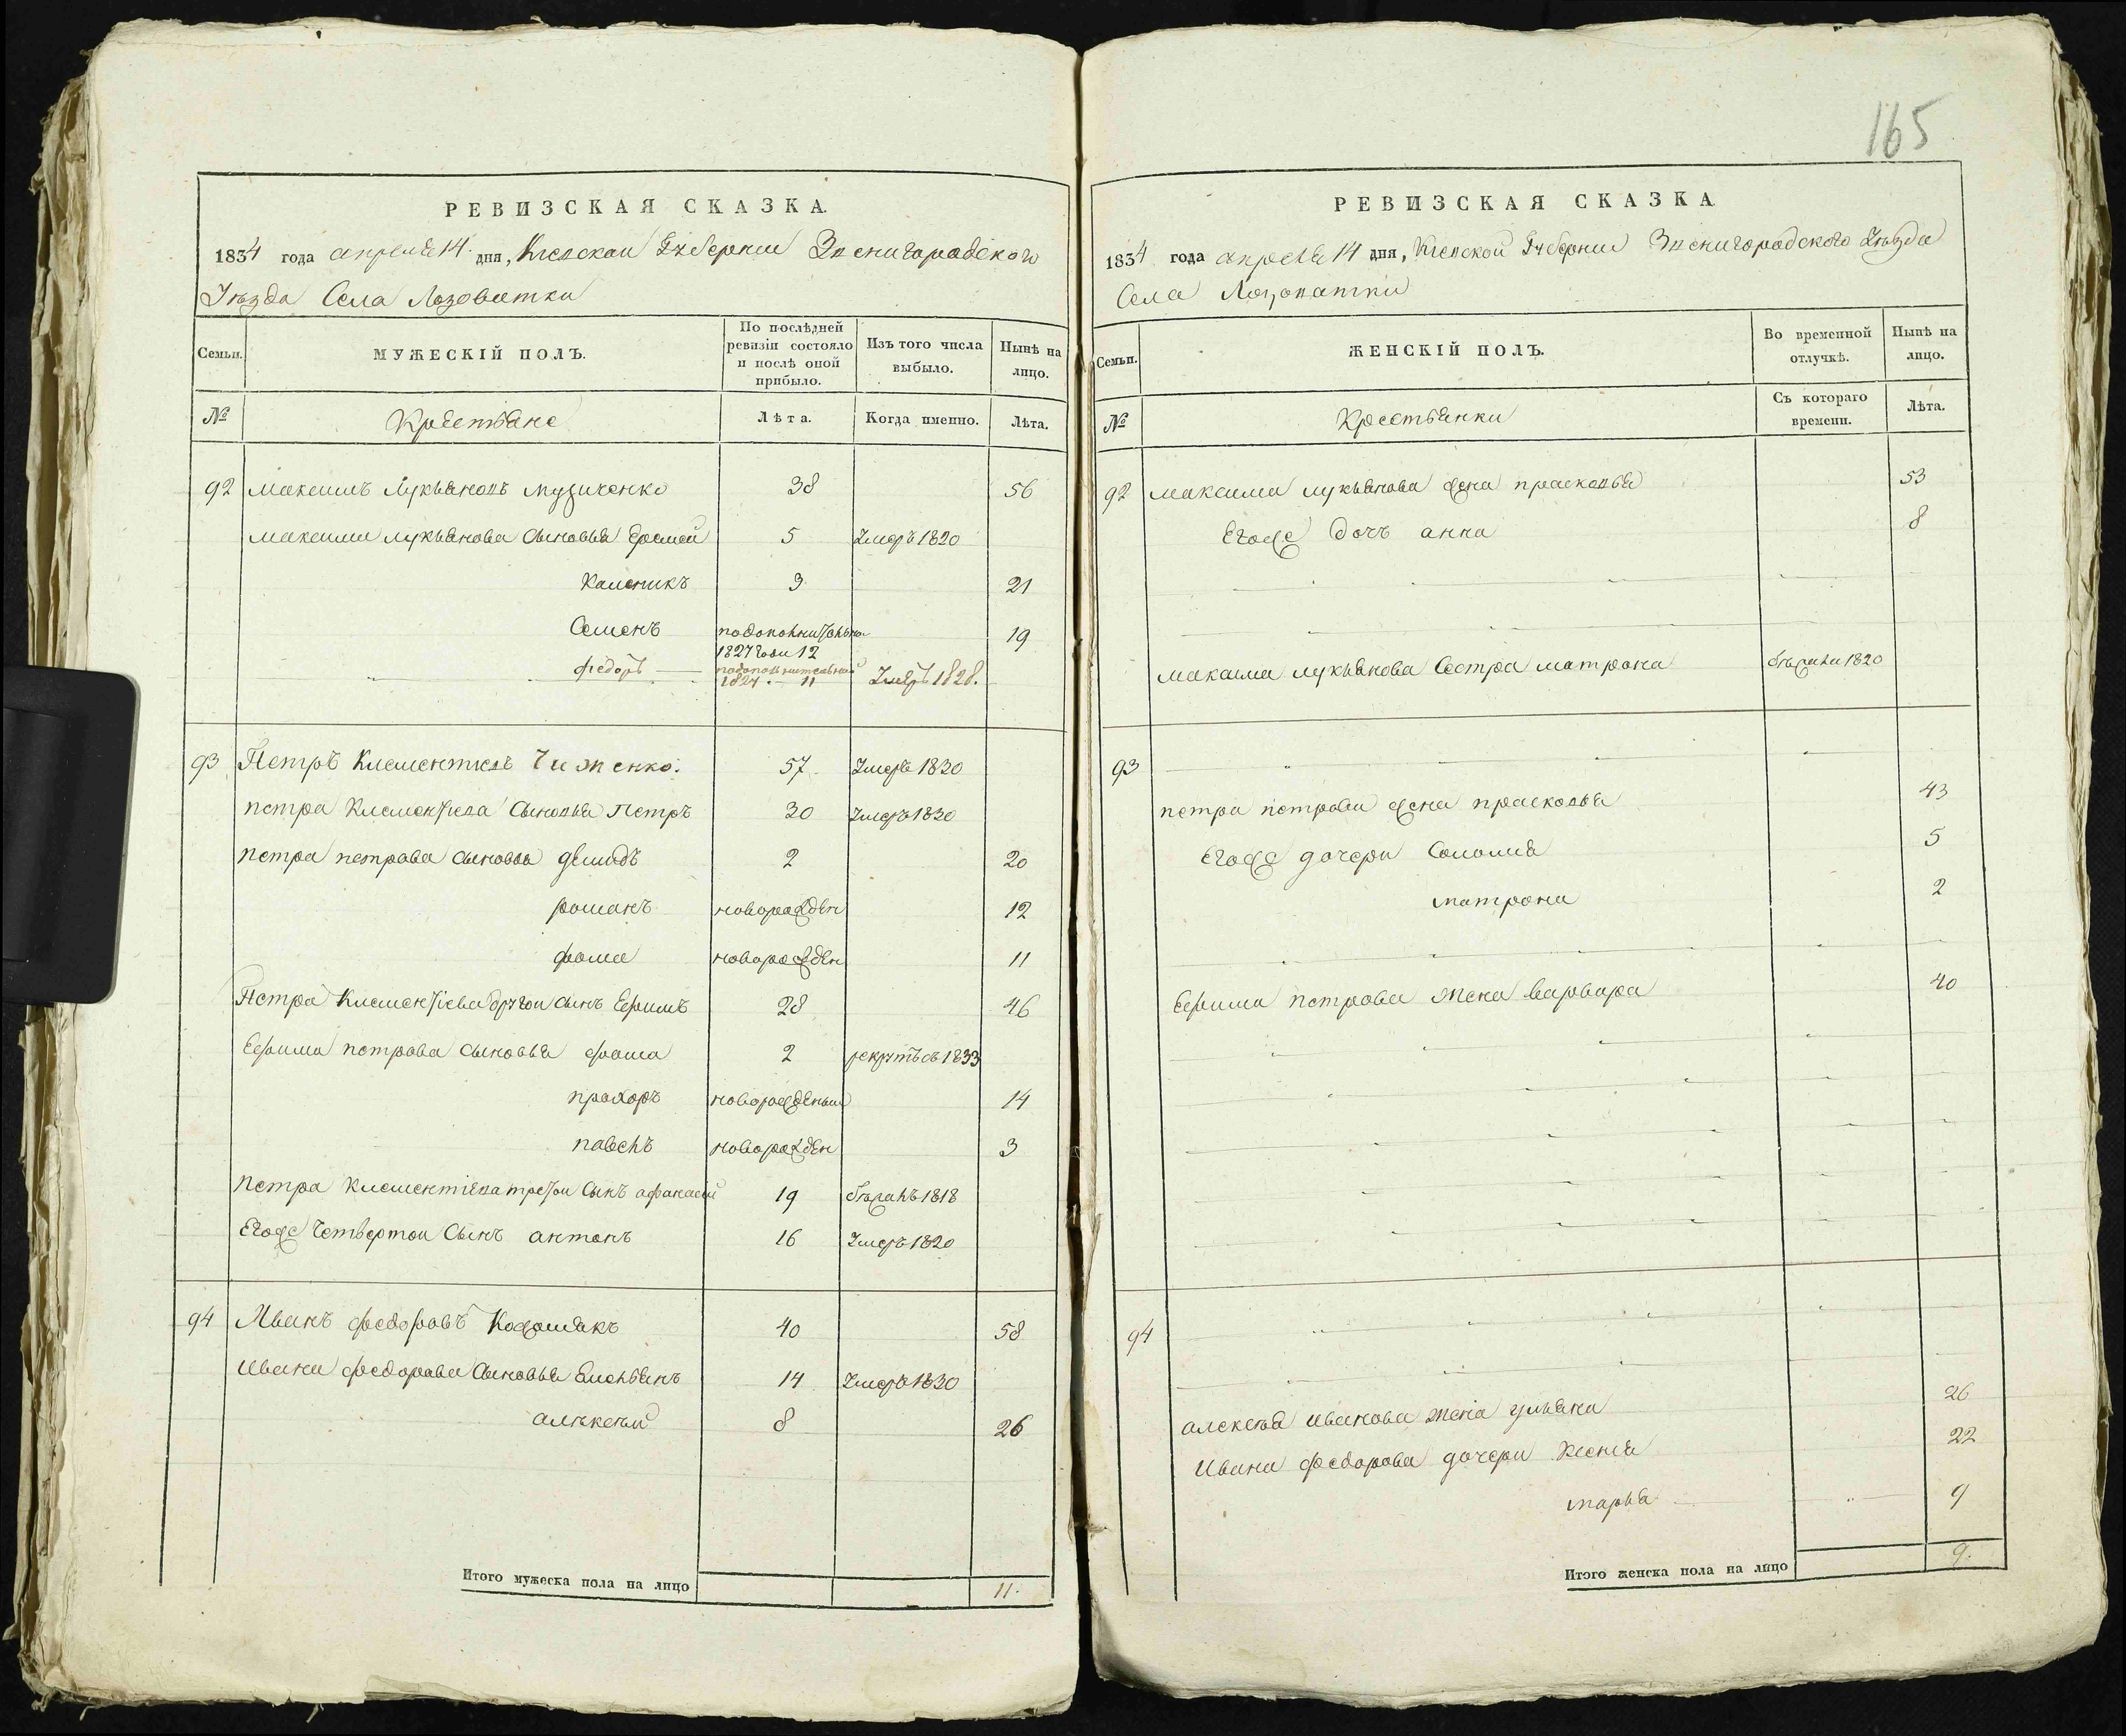 165
РЕВИЗСКАЯ СКАЗКА.
1834 года апреля 14 дня, Киевской Губернии Звенигородского
Уѣзда Села Лозоватки
Семьи.
МУЖЕСКІЙ ПОЛЪ.
По послѣдней ревизіи состояло и послѣ оной прибыло.
Изъ того числа выбыло.
Нынѣ на лицо.
№
Крестьяне
Лѣта.
Когда именно.
Лѣта.
92 Максимъ Лукьяновъ Музиченко 38 56
Максима лукьянова сыновья Еремей 5 Умеръ 1820
Каленикъ 3 21
Семенъ подополнительно 1827 года 12 19
федоръ подополнительной 1827 11 Умеръ 1828.
93 Петръ Клементиевъ Чиженко. 57 Умеръ 1830
петра Клементиева Сыновья Петръ 30 Умеръ 1830
петра петрова сыновья демидъ 2 20
романъ новорожден 12
фома новорожден 11
Петра Клементіева другои сынъ Ефимъ 28 46
Ефима петрова сыновья фома 2 рекрутъ съ 1833
прохоръ новорожденыи 14
павелъ новорожден 3
петра клементіева третои Сынъ афанасей 19 бѣжалъ 1818
Егоже Четвертои Сынъ антонъ 16 Умеръ 1820
94 Иванъ федоровъ Кожомякъ 40 58
ивана федорова Сыновья Емельянъ 14 Умеръ 1830
алѣксѣй 8 26
Итого мужеска пола на лицо 11.
РЕВИЗСКАЯ СКАЗКА
1834 года апреля 14 дня, Киевской Губернии Звенигородского Уѣзда
Села Лозоватки
Семьи.
ЖЕНСКІЙ ПОЛЪ.
Во временной отлучкѣ.
Нынѣ на лицо.
№
Крестьянки
Съ котораго времени.
Лѣта.
92 Максима лукьянова жена прасковья 53
Егоже дочь анна 8
Максима лукьянова Сестра матрона бѣжала 1820
93
петра петрова жена прасковья 43
Егоже дочери Соломия 5
матрона 2
Ефима петрова жена варвара 40
94
алексѣя иванова жена ульяна 26
Ивана федорова дочери Ксения 22
марья 9
Итого женска пола на лицо 9.